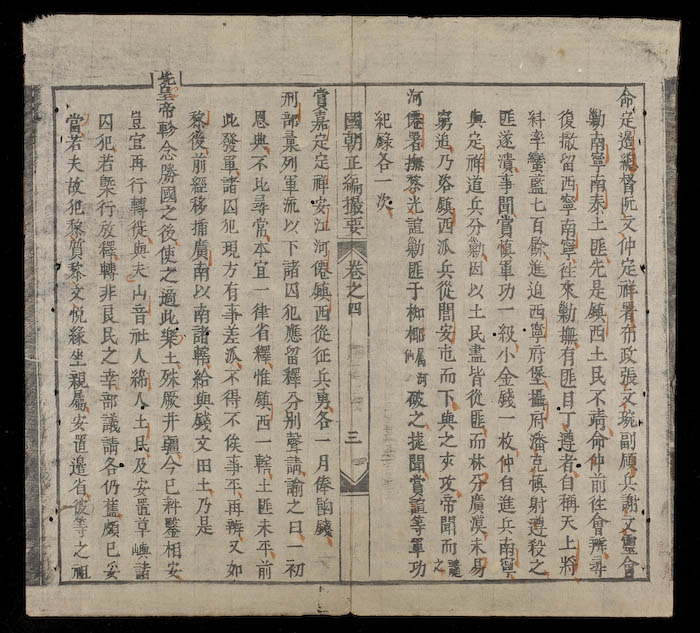 命定邊總督阮文仲定祥署布政張文琬副領兵謝文靈會
勦南寧南泰土匪先是鎮西土民不靖命仲前往會辦尋
復撤留西寧南寧往來勦撫有匪目丁遵者自稱天上將
糾率蠻藍七百餘進迫西寧府堡攝府潘克慎射遵殺之
匪遂潰事聞賞慎軍功一級小金錢一枚仲自進兵南寧
與定祥道兵分勦因以土民盡皆從匪而林分廣漠未易
窮追乃咨鎮西派兵從開安市而下與之夾攻帝聞而譏之
河僊署撫黎光誼勦匪于柳椰屬河僊破之捷聞賞誼等軍功
紀錄各一次
國朝正編撮要
卷之四
三
賞嘉定定祥安江河僊鎮西從征兵勇各一月俸餉錢
刑部彙列軍流以下諸囚犯應留釋分別聲請諭之曰一初
恩典不比尋常本宜一律省釋惟鎮西一轄土匪未平前
此發軍諸囚犯現方有事差派不得不俟事平再辦又如
黎後前經移插廣南以南諸轄給與錢文田土乃是
先皇帝軫念勝國之後使之適此樂土殊厥井疆今已耕鑿相安
豈宜再行轉徙與夫山音社人綿人土民及安置草嶼諸
囚犯若槩行放釋轉非良民之幸部議請各仍舊頗已妥
當若夫故犯黎質黎文悅緣坐親屬安置邊省彼等之祖